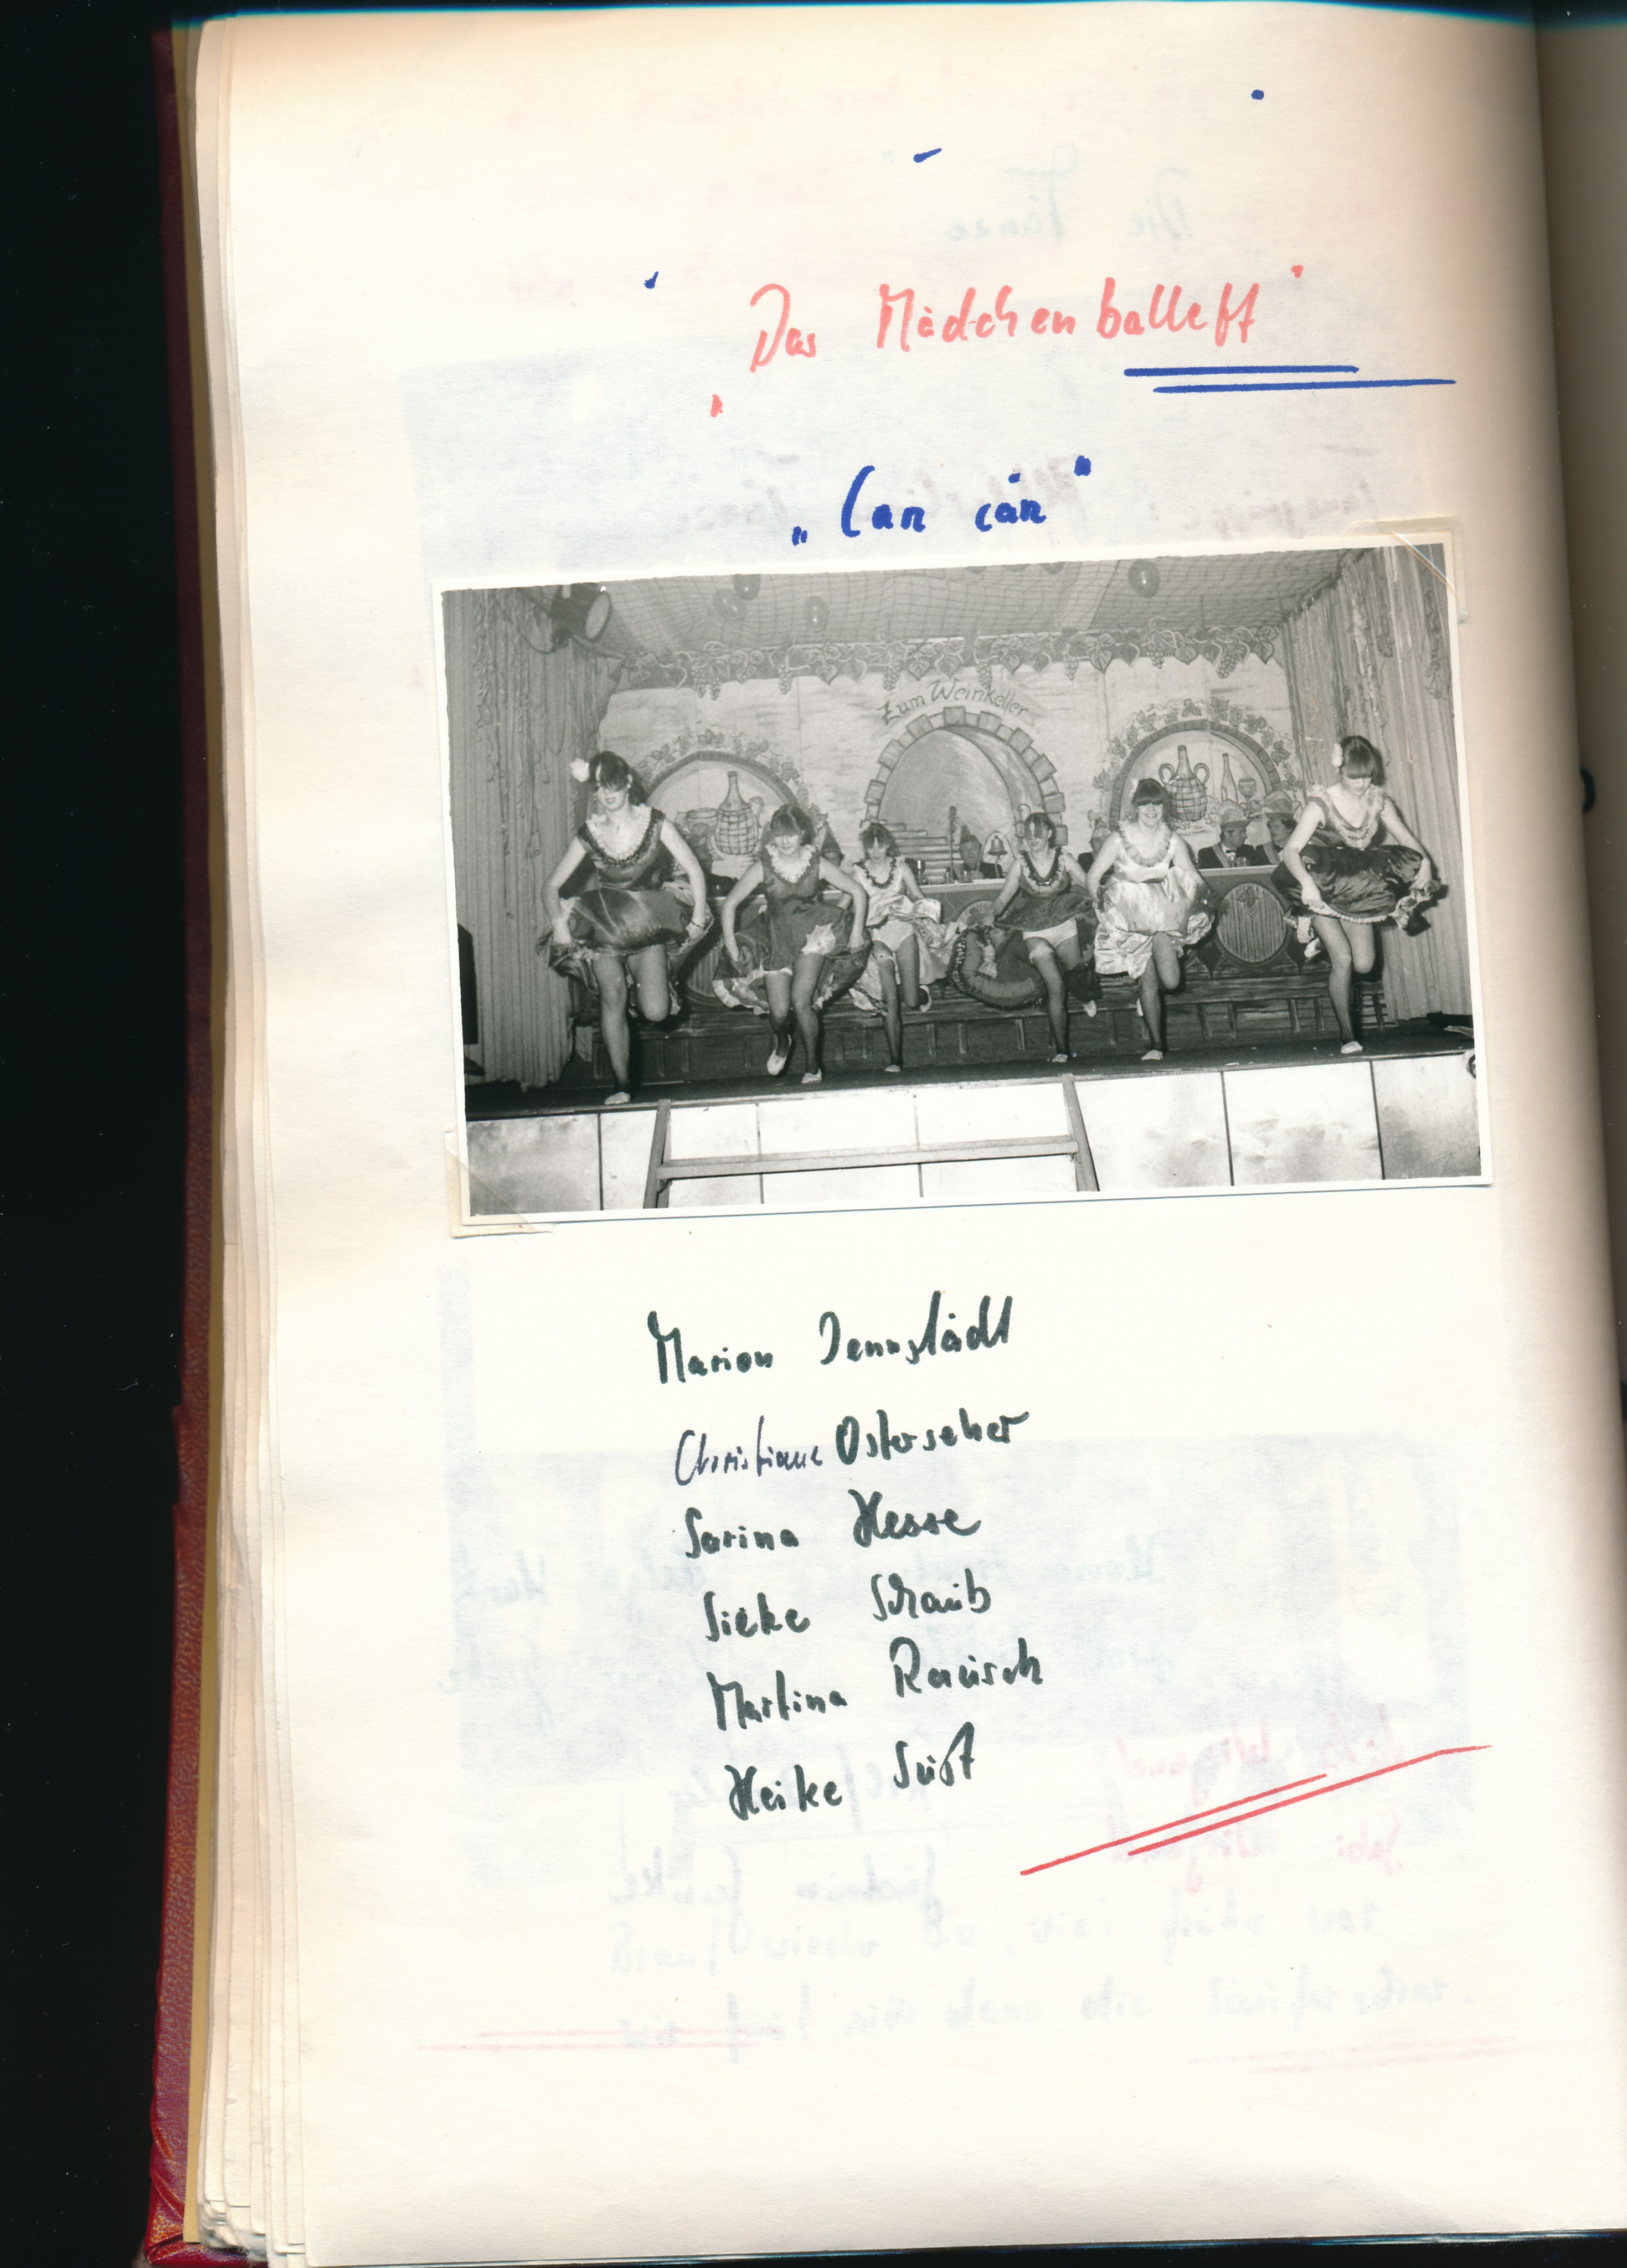 „Das Mädchenballett"
„Can can"
Zum Weinkeller
Marion Dennstädt
Christiane Osterseher
Sarina Hesse
Silke Schaub
Martina
Heike